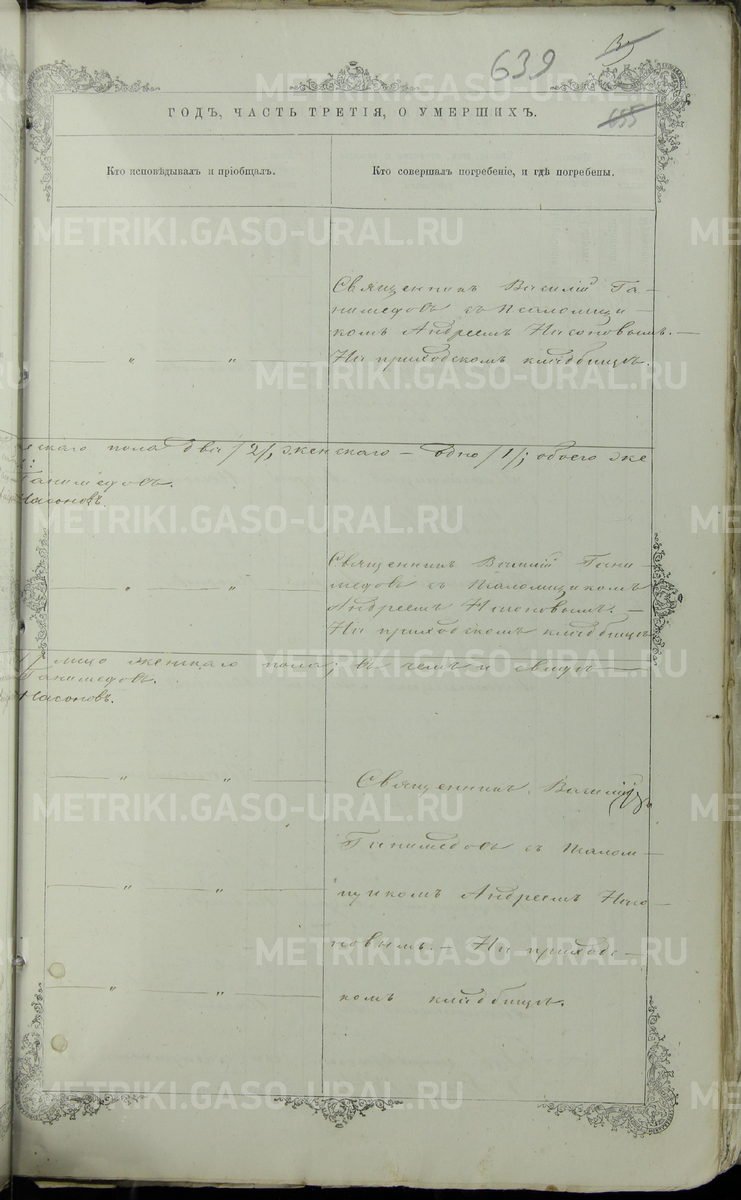 639
ГОДЪ, ЧАСТЬ ТРЕТІЯ, О УМЕРШИХЪ.
655
Кто исповѣдывалъ и пріобщалъ.
Кто совершалъ погребеніе, и гдѣ погребены.
Священникъ Василій Га-
нимедовъ съ Псаломщи
комъ Андреемъ Насоновымъ.—
На приходскомъ кладбищѣ.
ескаго пола два /2/, женскаго — одно /1/; обоего же
Ганимедовъ.
Насоновъ.
Священникъ Василій Гани-
медовъ съ Псаломщикомъ
Андреемъ Насоновымъ.—
На приходскомъ кладбищѣ
лицо женскаго пола; въ чемъ и свидѣ—
Ганимедовъ.
Насоновъ.
Священникъ Василій
Ганимедовъ съ Псалом—
щикомъ Андреемъ Насо—
новымъ.— На приходс—
комъ кладбищѣ.
METRIKI.GASO-URAL.RU